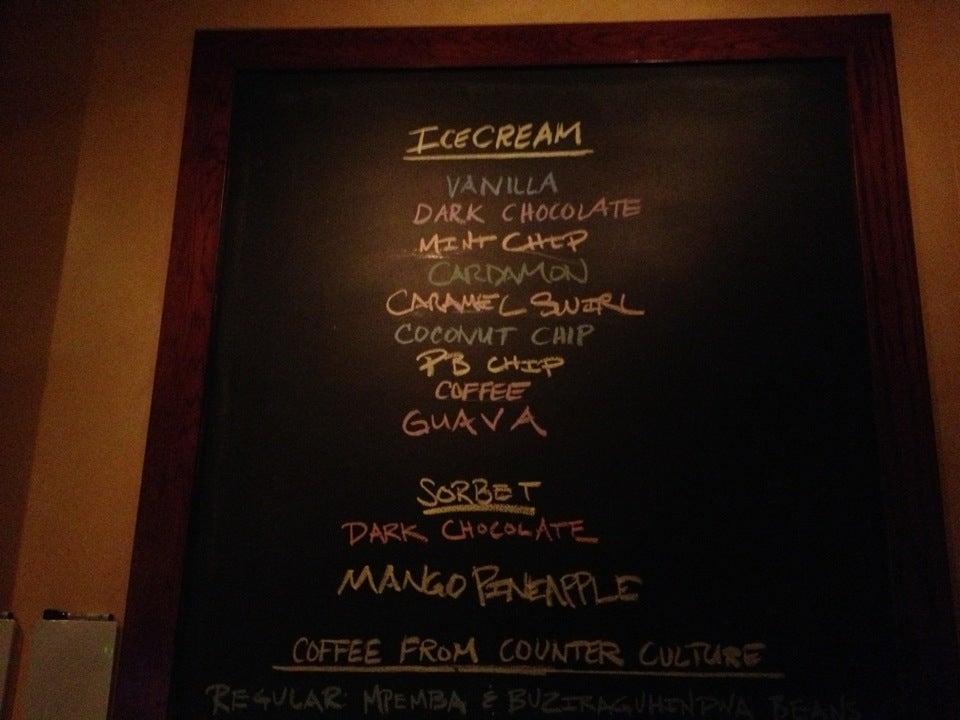 ICECREAM
VANILLA
DARK CHOCOLATE
MINT CHIP
CARDAMON
CARAMEL SWIRL
COCONUT CHIP
PB CHIP
COFFEE
GUAVA
SORBET
DARK CHOCOLATE
MANGO PINEAPPLE
COFFEE FROM COUNTER CULTURE
REGULAR: MPEMBA & BUZIRAGUHINDWA BEANS